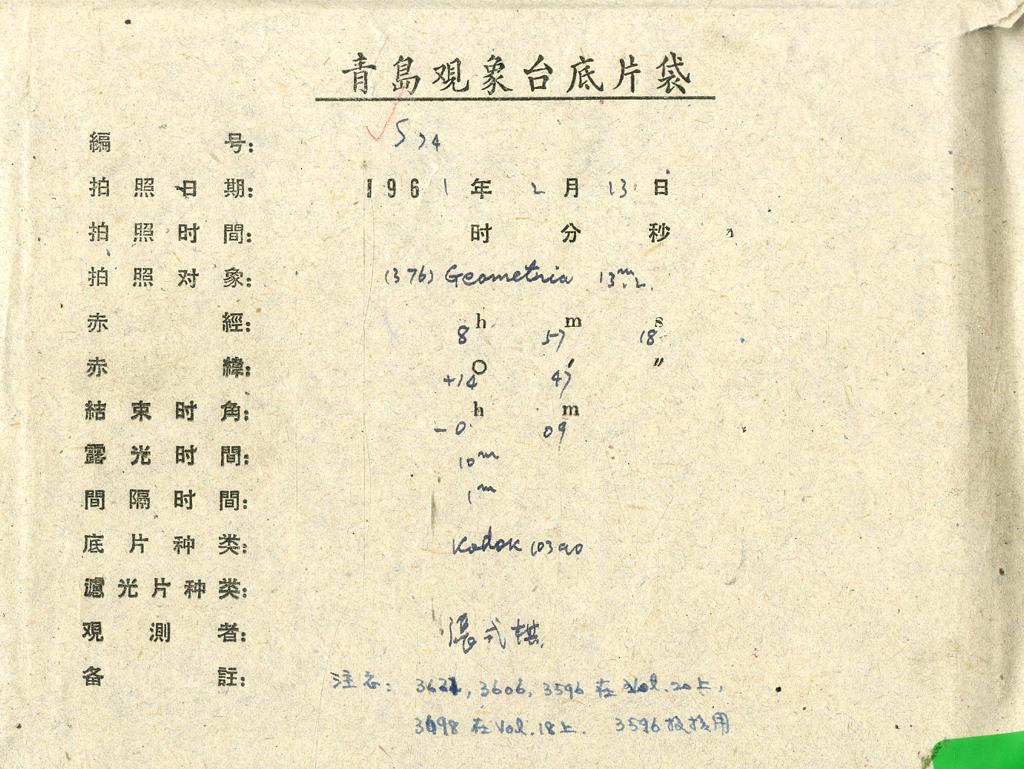 青島观象台底片袋
編 号: S 74
拍照日期: 1961年2月13日
拍照时間: 时 分 秒
拍照对象: (376) Geometria 13m.2
赤 經: 8h 57m 18s
赤 緯: +14° 47′ ″
結束时角: -0h 09m
露光时間: 10m
間隔时間: 1m
底片种类: Kodak 103aO
濾光片种类:
观測者: 張式棋
备 註: 注意: 3621, 3606, 3596 在 Vol. 20上,
3698 在 Vol. 18上. 3596 用